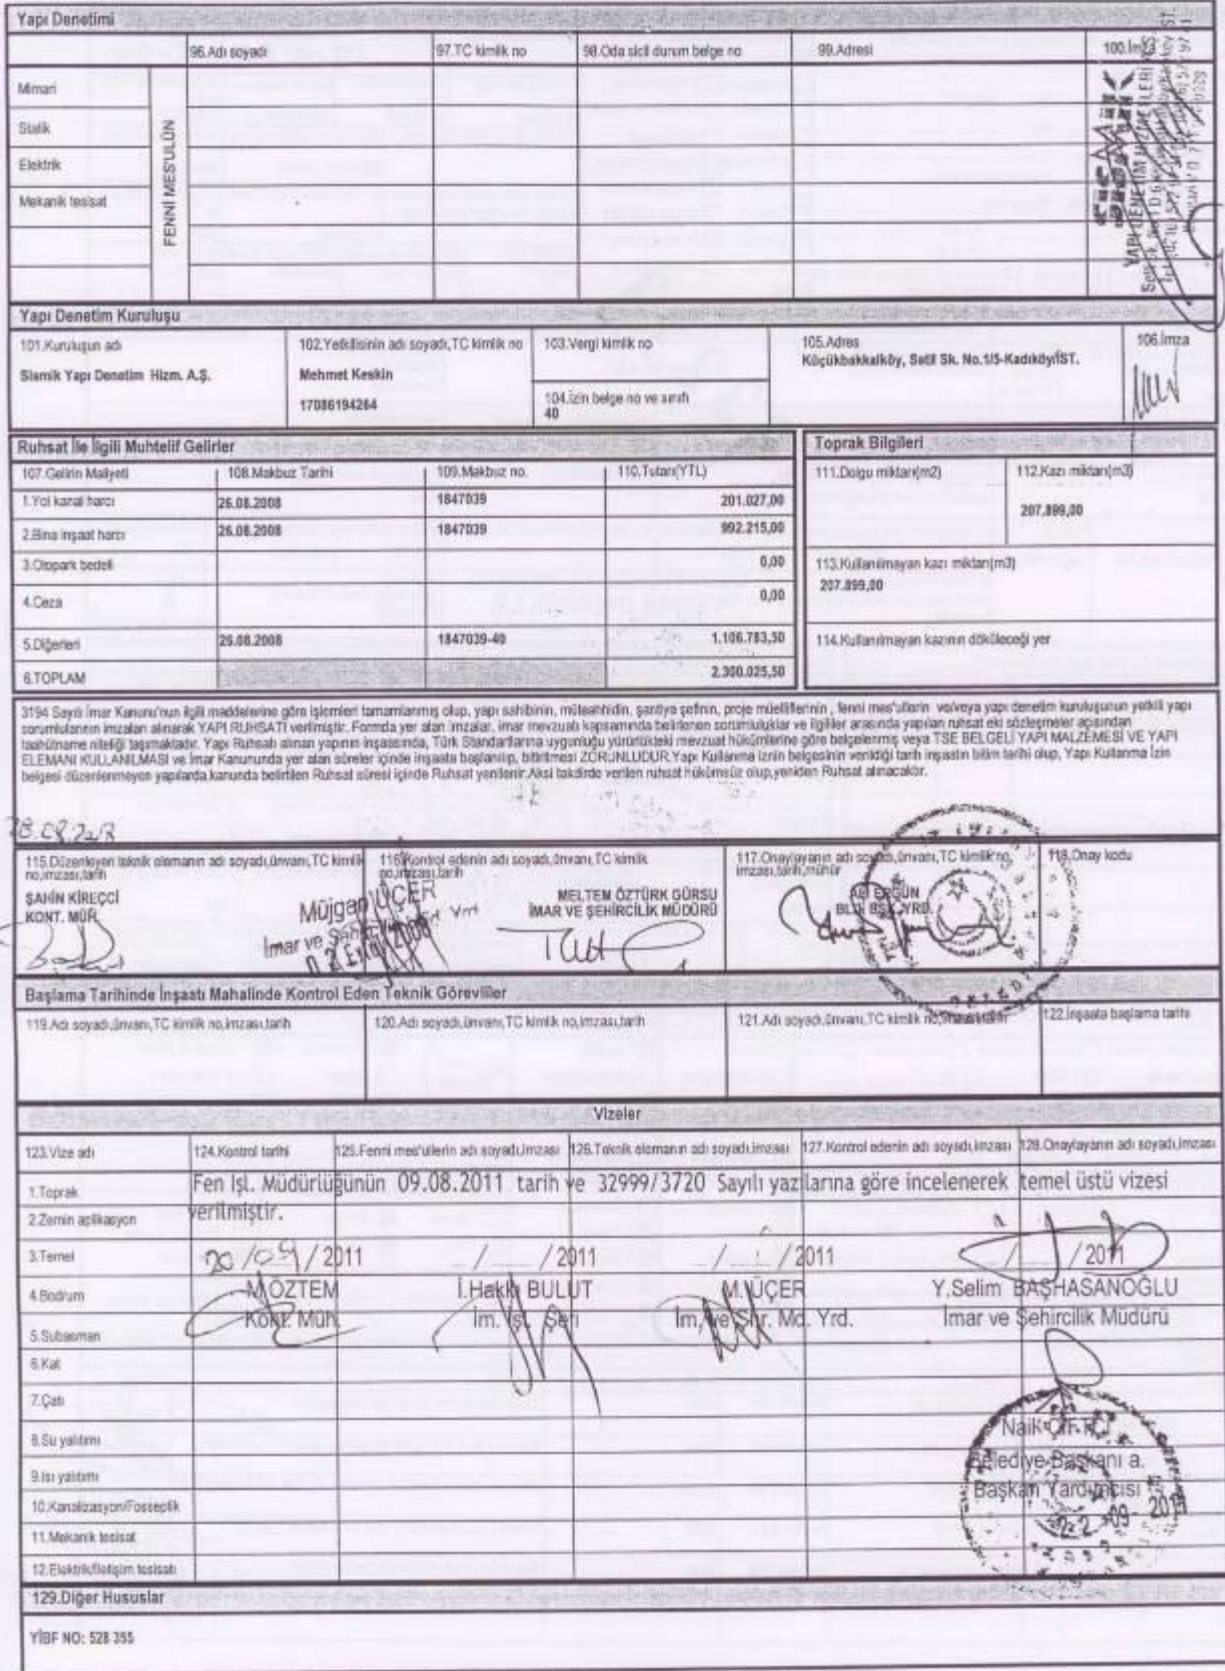 Yapı Denetimi
96.Adı soyadı 97.TC kimlik no 98.Oda sicil durum belge no 99.Adresi 100.İmza
Mimari
Statik
Elektrik
Mekanik tesisat
FENNİ MES'ULÜN
YAPI DENETİM HİZMETLERİ A.Ş.
Yapı Denetim Kuruluşu
101.Kuruluşun adı 102.Yetkilisinin adı soyadı,TC kimlik no 103.Vergi kimlik no 105.Adres 106.İmza
Sismik Yapı Denetim Hizm. A.Ş. Mehmet Keskin Küçükbakkalköy, Setil Sk. No.1/5-Kadıköy/İST.
17086194264 104.İzin belge no ve sınıfı
40
Ruhsat İle İlgili Muhtelif Gelirler
107.Gelirin Maliyeti 108.Makbuz Tarihi 109.Makbuz no. 110.Tutarı(YTL)
1.Yol kanal harcı 26.08.2008 1847039 201.027,00
2.Bina inşaat harcı 26.08.2008 1847039 992.215,00
3.Otopark bedeli 0,00
4.Ceza 0,00
5.Diğerleri 26.08.2008 1847039-40 1.106.783,50
6.TOPLAM 2.300.025,50
Toprak Bilgileri
111.Dolgu miktarı(m2) 112.Kazı miktarı(m3)
207.899,00
113.Kullanılmayan kazı miktarı(m3)
207.899,00
114.Kullanılmayan kazının döküleceği yer
3194 Sayılı İmar Kanunu'nun ilgili maddelerine göre işlemleri tamamlanmış olup, yapı sahibinin, müteahhidin, şantiye şefinin, proje müelliflerinin , fenni mes'ullerin ve/veya yapı denetim kuruluşunun yetkili yapı
sorumlularının imzaları alınarak YAPI RUHSATI verilmiştir. Formda yer alan imzalar, imar mevzuatı kapsamında belirlenen sorumluluklar ve ilgililer arasında yapılan ruhsat eki sözleşmeler açısından
taahhütname niteliği taşımaktadır. Yapı Ruhsatı alınan yapının inşaasında, Türk Standartlarına uygunluğu yürürlükteki mevzuat hükümlerine göre belgelenmiş veya TSE BELGELİ YAPI MALZEMESİ VE YAPI
ELEMANI KULLANILMASI ve İmar Kanununda yer alan süreler içinde inşaata başlanılıp, bitirilmesi ZORUNLUDUR.Yapı Kullanma İznin belgesinin verildiği tarih inşaatın bitim tarihi olup, Yapı Kullanma İzin
belgesi düzenlenmeyen yapılarda kanunda belirtilen Ruhsat süresi içinde Ruhsat yenilenir.Aksi takdirde verilen ruhsat hükümsüz olup,yeniden Ruhsat alınacaktır.
115.Düzenleyen teknik elemanın adı soyadı,ünvanı,TC kimlik no,imzası,tarih
ŞAHİN KİREÇCİ
KONT. MÜH.
116.Kontrol edenin adı soyadı,ünvanı,TC kimlik no,imzası,tarih
Müjgan ÜÇER
İmar ve
MELTEM ÖZTÜRK GÜRSU
İMAR VE ŞEHİRCİLİK MÜDÜRÜ
117.Onaylayanın adı soyadı,ünvanı,TC kimlik no, imzası,tarih,mühür
ERGÜN
BLD. BŞK. YRD.
118.Onay kodu
Başlama Tarihinde İnşaatı Mahalinde Kontrol Eden Teknik Görevliler
119.Adı soyadı,ünvanı,TC kimlik no,imzası,tarih 120.Adı soyadı,ünvanı,TC kimlik no,imzası,tarih 121.Adı soyadı,ünvanı,TC kimlik no,imzası,tarih 122.İnşaata başlama tarihi
Vizeler
123.Vize adı 124.Kontrol tarihi 125.Fenni mes'ullerin adı soyadı,imzası 126.Teknik elemanın adı soyadı,imzası 127.Kontrol edenin adı soyadı,imzası 128.Onaylayanın adı soyadı,imzası
1.Toprak Fen İşl. Müdürlüğünün 09.08.2011 tarih ve 32999/3720 Sayılı yazılarına göre incelenerek temel üstü vizesi
2.Zemin aplikasyon verilmiştir.
3.Temel 20/09/2011 /2011 /2011 /2011
4.Bodrum M.ÖZTEM İ.Hakkı BULUT M.ÜÇER Y.Selim BAŞHASANOĞLU
Kont. Müh. İm. İşl. Şefi İm. ve Şhr. Md. Yrd. İmar ve Şehircilik Müdürü
5.Subasman
6.Kat
7.Çatı
8.Su yalıtımı
9.Isı yalıtımı
10.Kanalizasyon/Fosseptik
11.Mekanik tesisat
12.Elektrik/İletişim tesisatı
Naik ÇİFTÇİ
Belediye Başkanı a.
Başkan Yardımcısı
22 -09- 2011
129.Diğer Hususlar
YİBF NO: 528 355